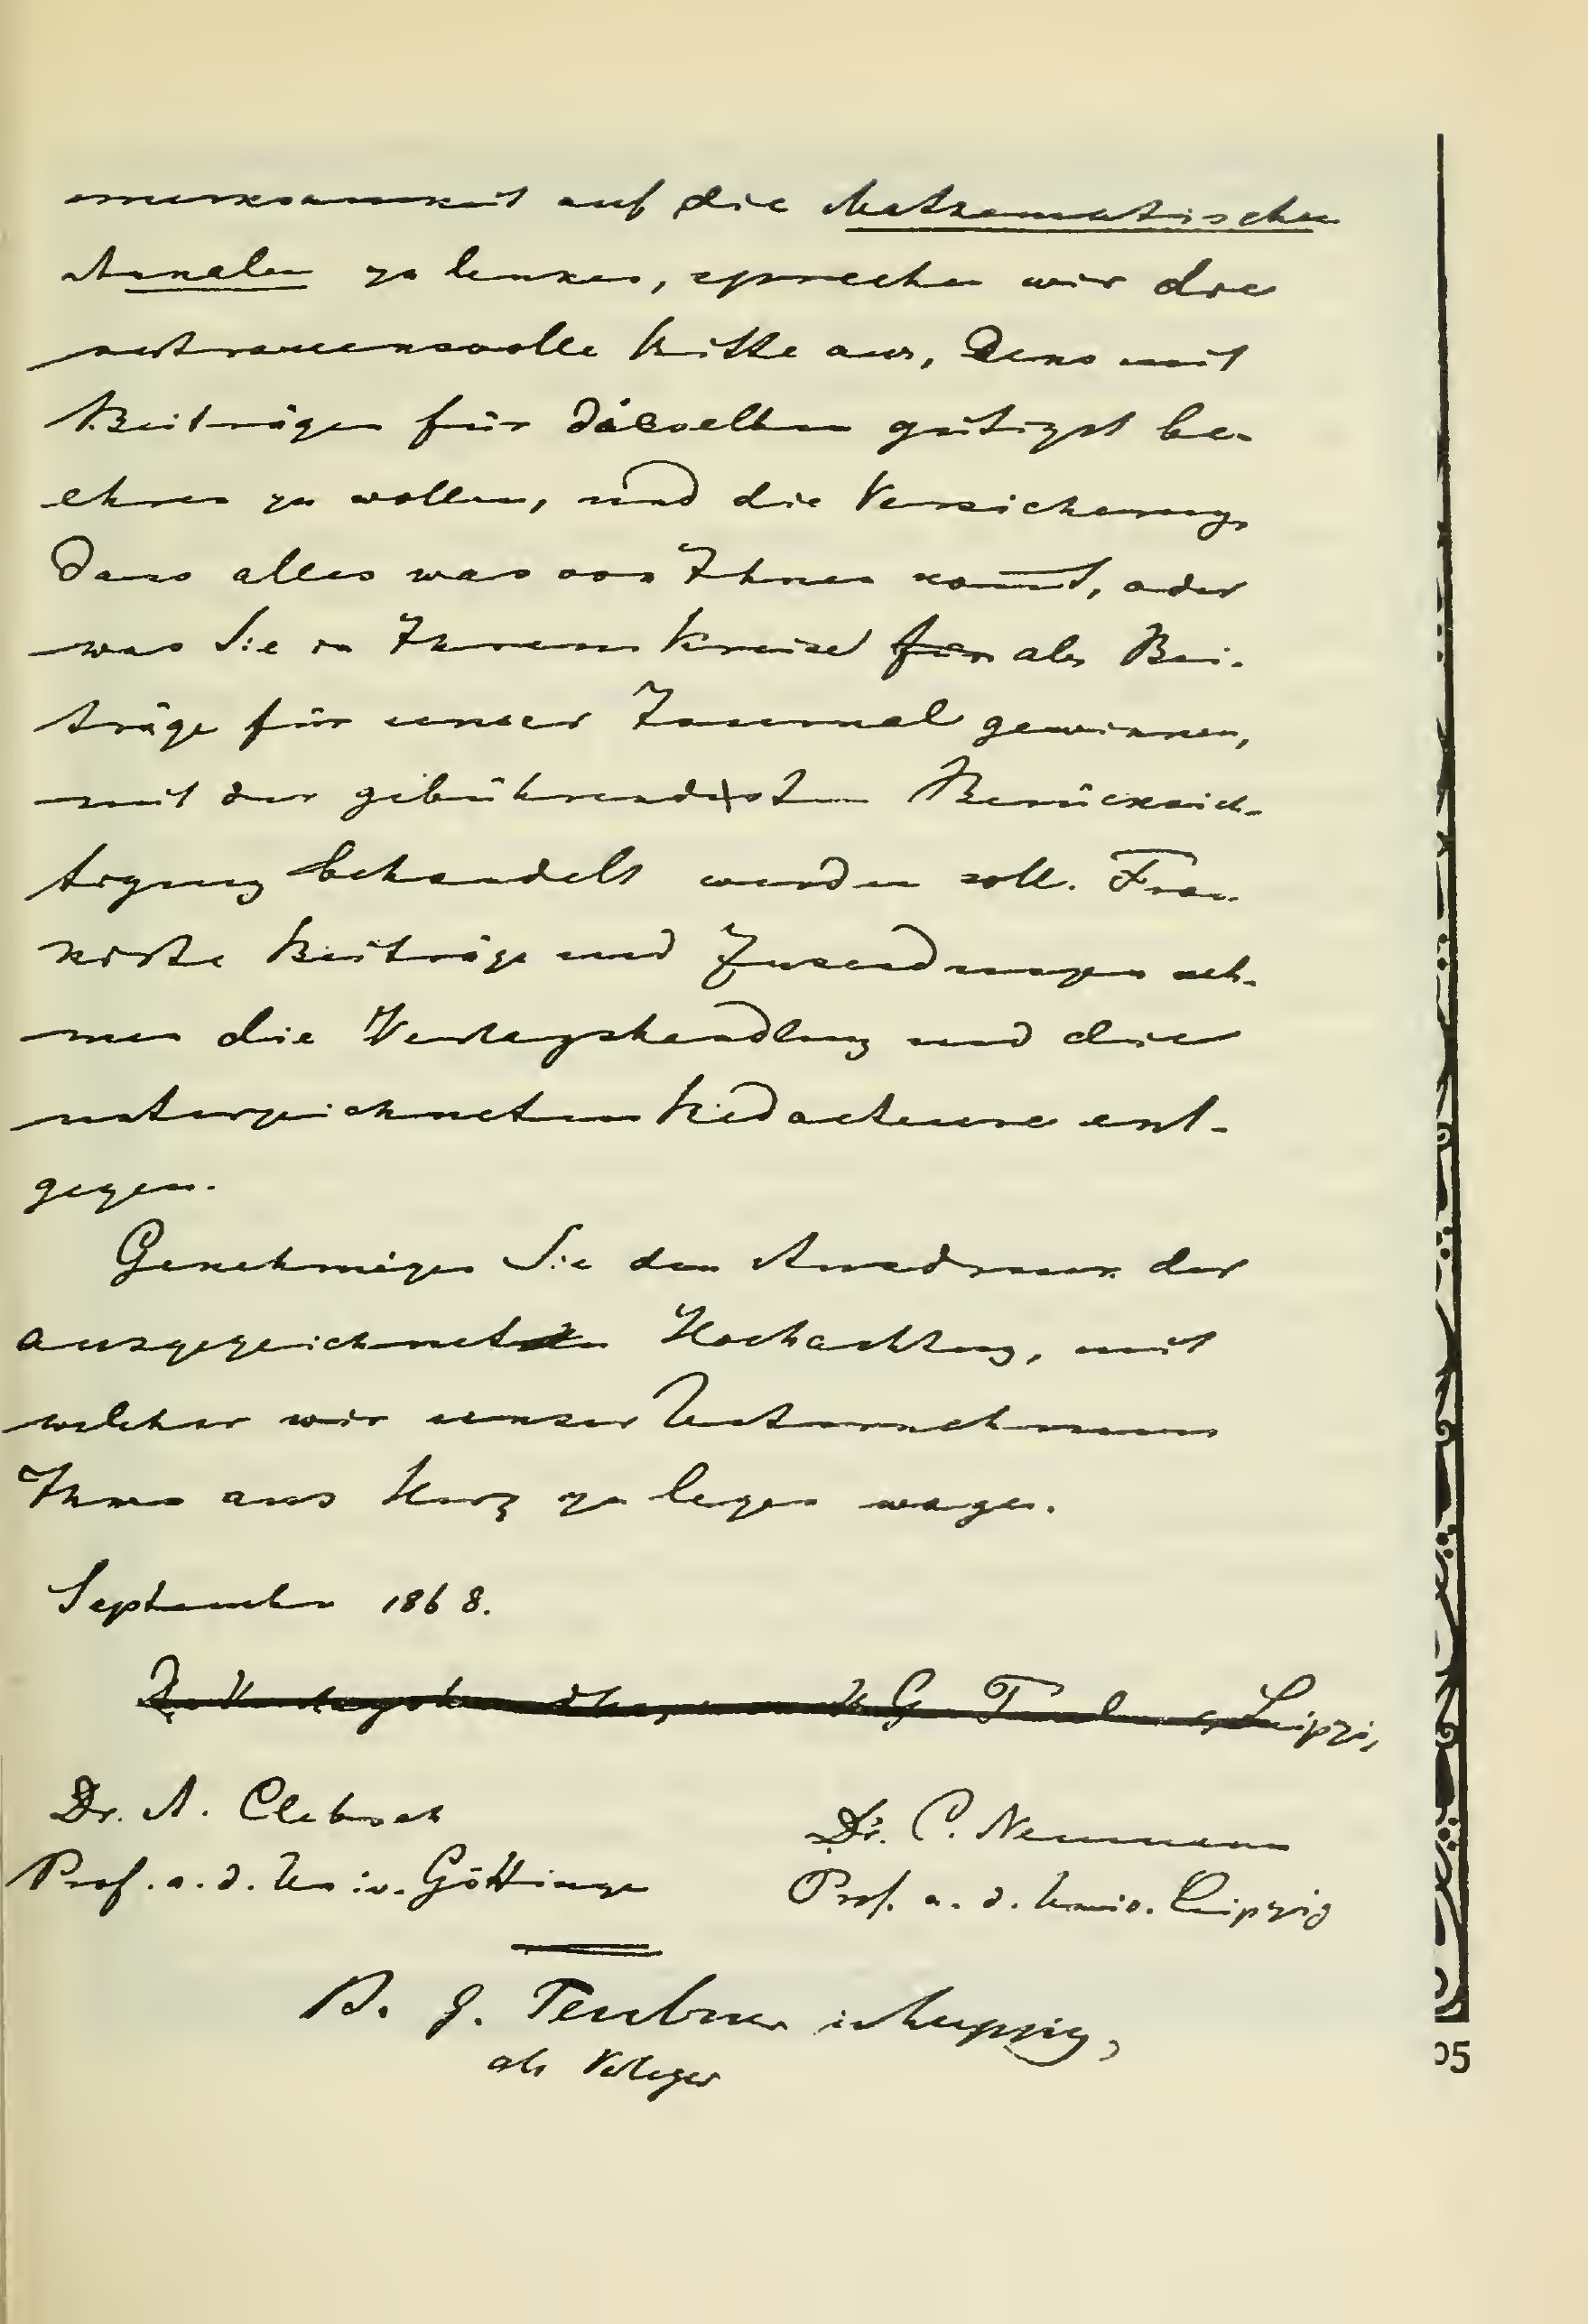 merksamkeit auf die Mathematischen
Annalen zu lenken, sprechen wir die
vertrauensvolle Bitte aus, uns mit
Beiträgen für dieselben gütigst be-
ehren zu wollen, und die Versicherung,
dass alles was von Ihnen kommt, oder
was Sie in Ihrem Kreise für als Bei-
träge für unser Journal gewinnen,
mit der gebührendsten Berücksich-
tigung behandelt werden soll. Fran-
kirte Beiträge und Zusendungen neh-
men die Verlagshandlung und die
unterzeichneten Redacteure ent-
gegen.
Genehmigen Sie den Ausdruck der
ausgezeichneten Hochachtung, mit
welcher wir unser Unternehmen
Ihnen ans Herz zu legen wagen.
September 1868.
Die Verlagshandlung von B. G. Teubner, Leipzig
Dr. A. Clebsch
Dr. C. Neumann
Prof. a. d. Univ. Göttingen
Prof. a. d. Univ. Leipzig
B. G. Teubner in Leipzig,
als Verleger